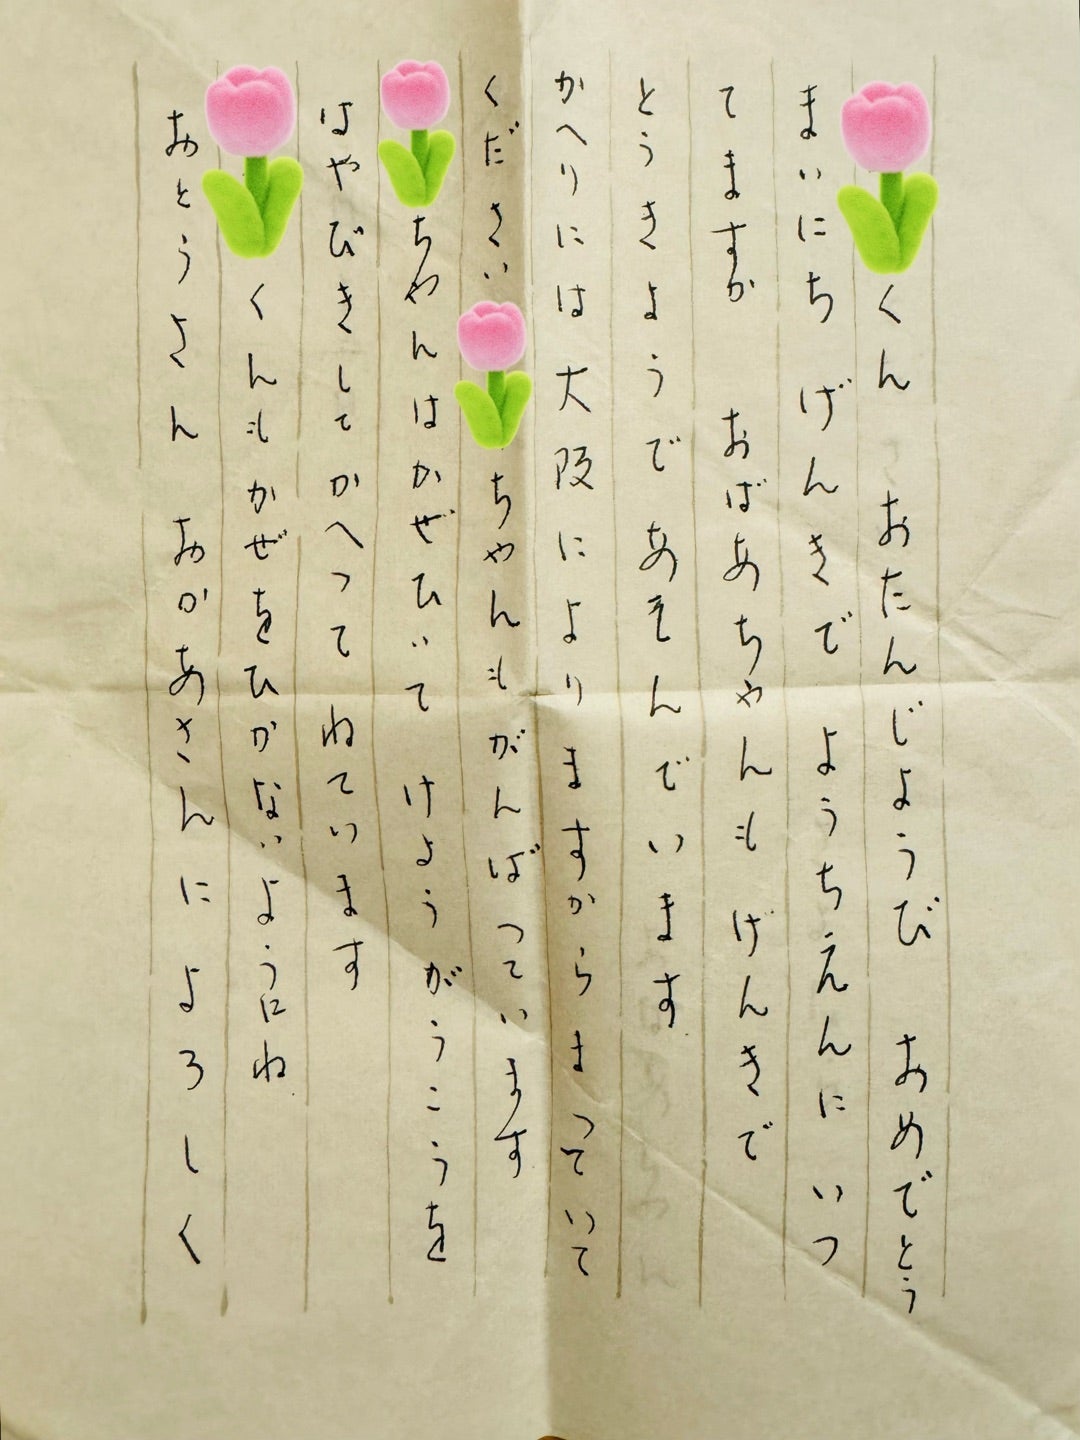 くん おたんじようび おめでとう
まいにち げんきで ようちえんに いつ
てますか おばあちゃんも げんきで
とうきようで あそんでいます
かへりには大阪によりますからまつていて
ください ちゃんもがんばつています
ちやんはかぜひいて けようがうこうを
はやびきしてかへつて ねています
くんもかぜをひかないようにね
おとうさん おかあさんによろしく